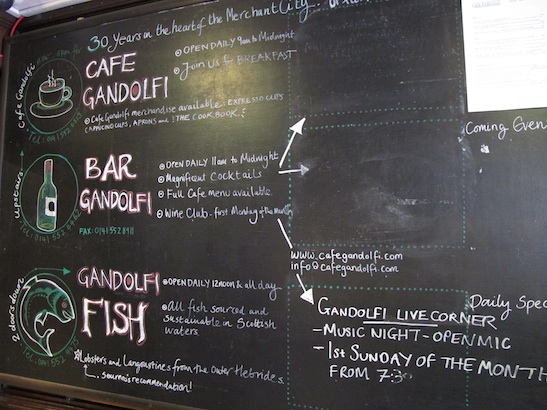 30 Years in the heart of the Merchant City
Cafe Gandolfi
CAFE
GANDOLFI
OPEN DAILY 9am to Midnight
Join Us for BREAKFAST
Cafe Gandolfi merchandise available. EXPRESSO CUPS
CAPPUCINO CUPS, APRONS and THE COOK BOOK
Upstairs
BAR
GANDOLFI
FAX: 0141 552 8911
OPEN DAILY 11am to Midnight
Magnificent Cocktails
Full Cafe menu available
Wine Club - first Monday of the Month
www.cafegandolfi.com
info@cafegandolfi.com
2 doors down
GANDOLFI
FISH
OPEN DAILY 12noon & all day
All fish sourced and
sustainable in Scottish
waters
Lobsters and Langoustines from the Outer Hebrides.
Seumas's recommendation!
GANDOLFI LIVE CORNER
- MUSIC NIGHT - OPEN MIC
- 1st SUNDAY OF THE MONTH
FROM 7:30
Coming Even
Daily Spec